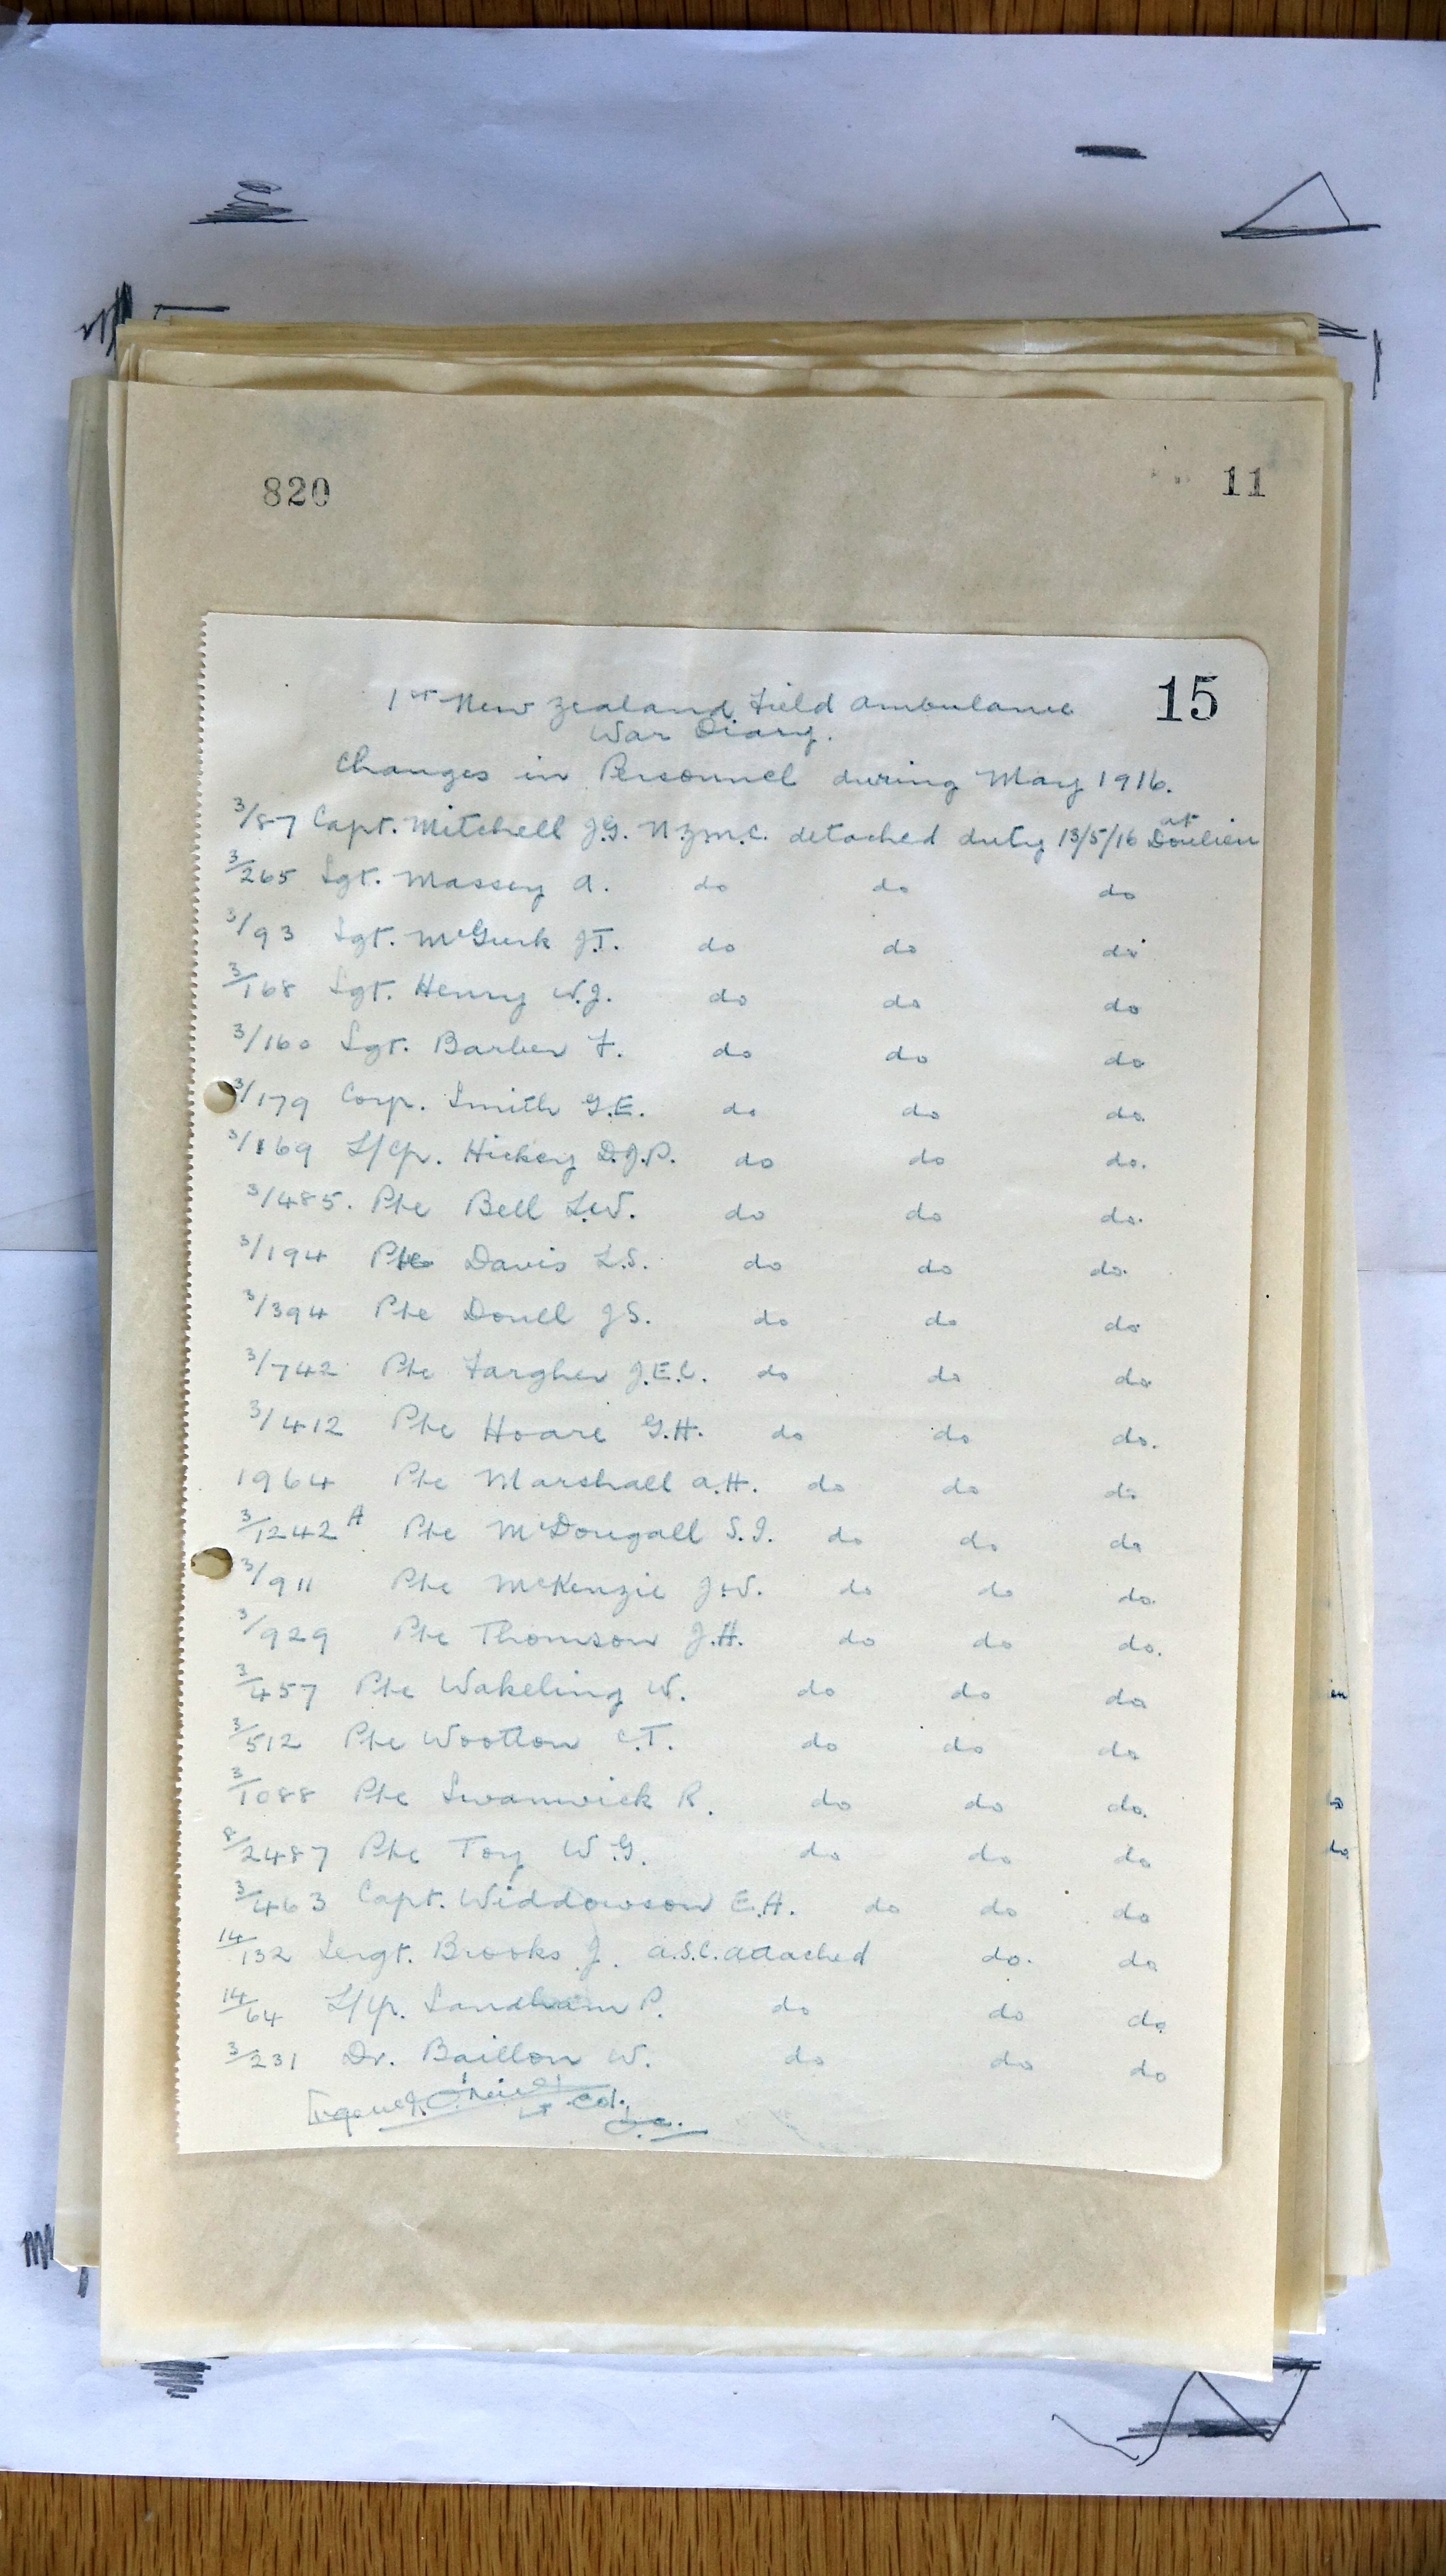 820
11
15
1st New Zealand Field Ambulance
War Diary.
Changes in Personnel during May 1916.
3/87 Capt. Mitchell J.G. N.Z.M.C. detached duty 13/5/16 at Doulieu
3/265 Sgt. Massey A. do do do
3/93 Sgt. McGurk J.T. do do do
3/168 Sgt. Henry W.J. do do do
3/160 Sgt. Barber F. do do do
3/179 Corp. Smith G.E. do do do.
3/169 L/Cp. Hickey D.J.P. do do do.
3/485. Pte Bell L.W. do do do.
3/194 Pte Davis L.S. do do do.
3/394 Pte Doull J S. do do do
3/742 Pte Fargher J.E.C. do do do
3/412 Pte Hoare G.H. do do do.
1964 Pte Marshall A.H. do do do
3/1242A Pte McDougall S.J. do do do
3/911 Pte McKenzie J.W. do do do.
3/929 Pte Thomson J.H. do do do.
3/457 Pte Wakeling W. do do do
3/512 Pte Wootton C.T. do do do
3/1088 Pte Swanwick R. do do do.
8/2487 Pte Toy W.G. do do do
3/463 Capt. Widdowson E.A. do do do
14/132 Sergt. Brooks J. A.S.C. attached do. do
14/64 L/Cp. Sandham P. do do do
3/231 Dr. Baillon W. do do do
Lt Col.